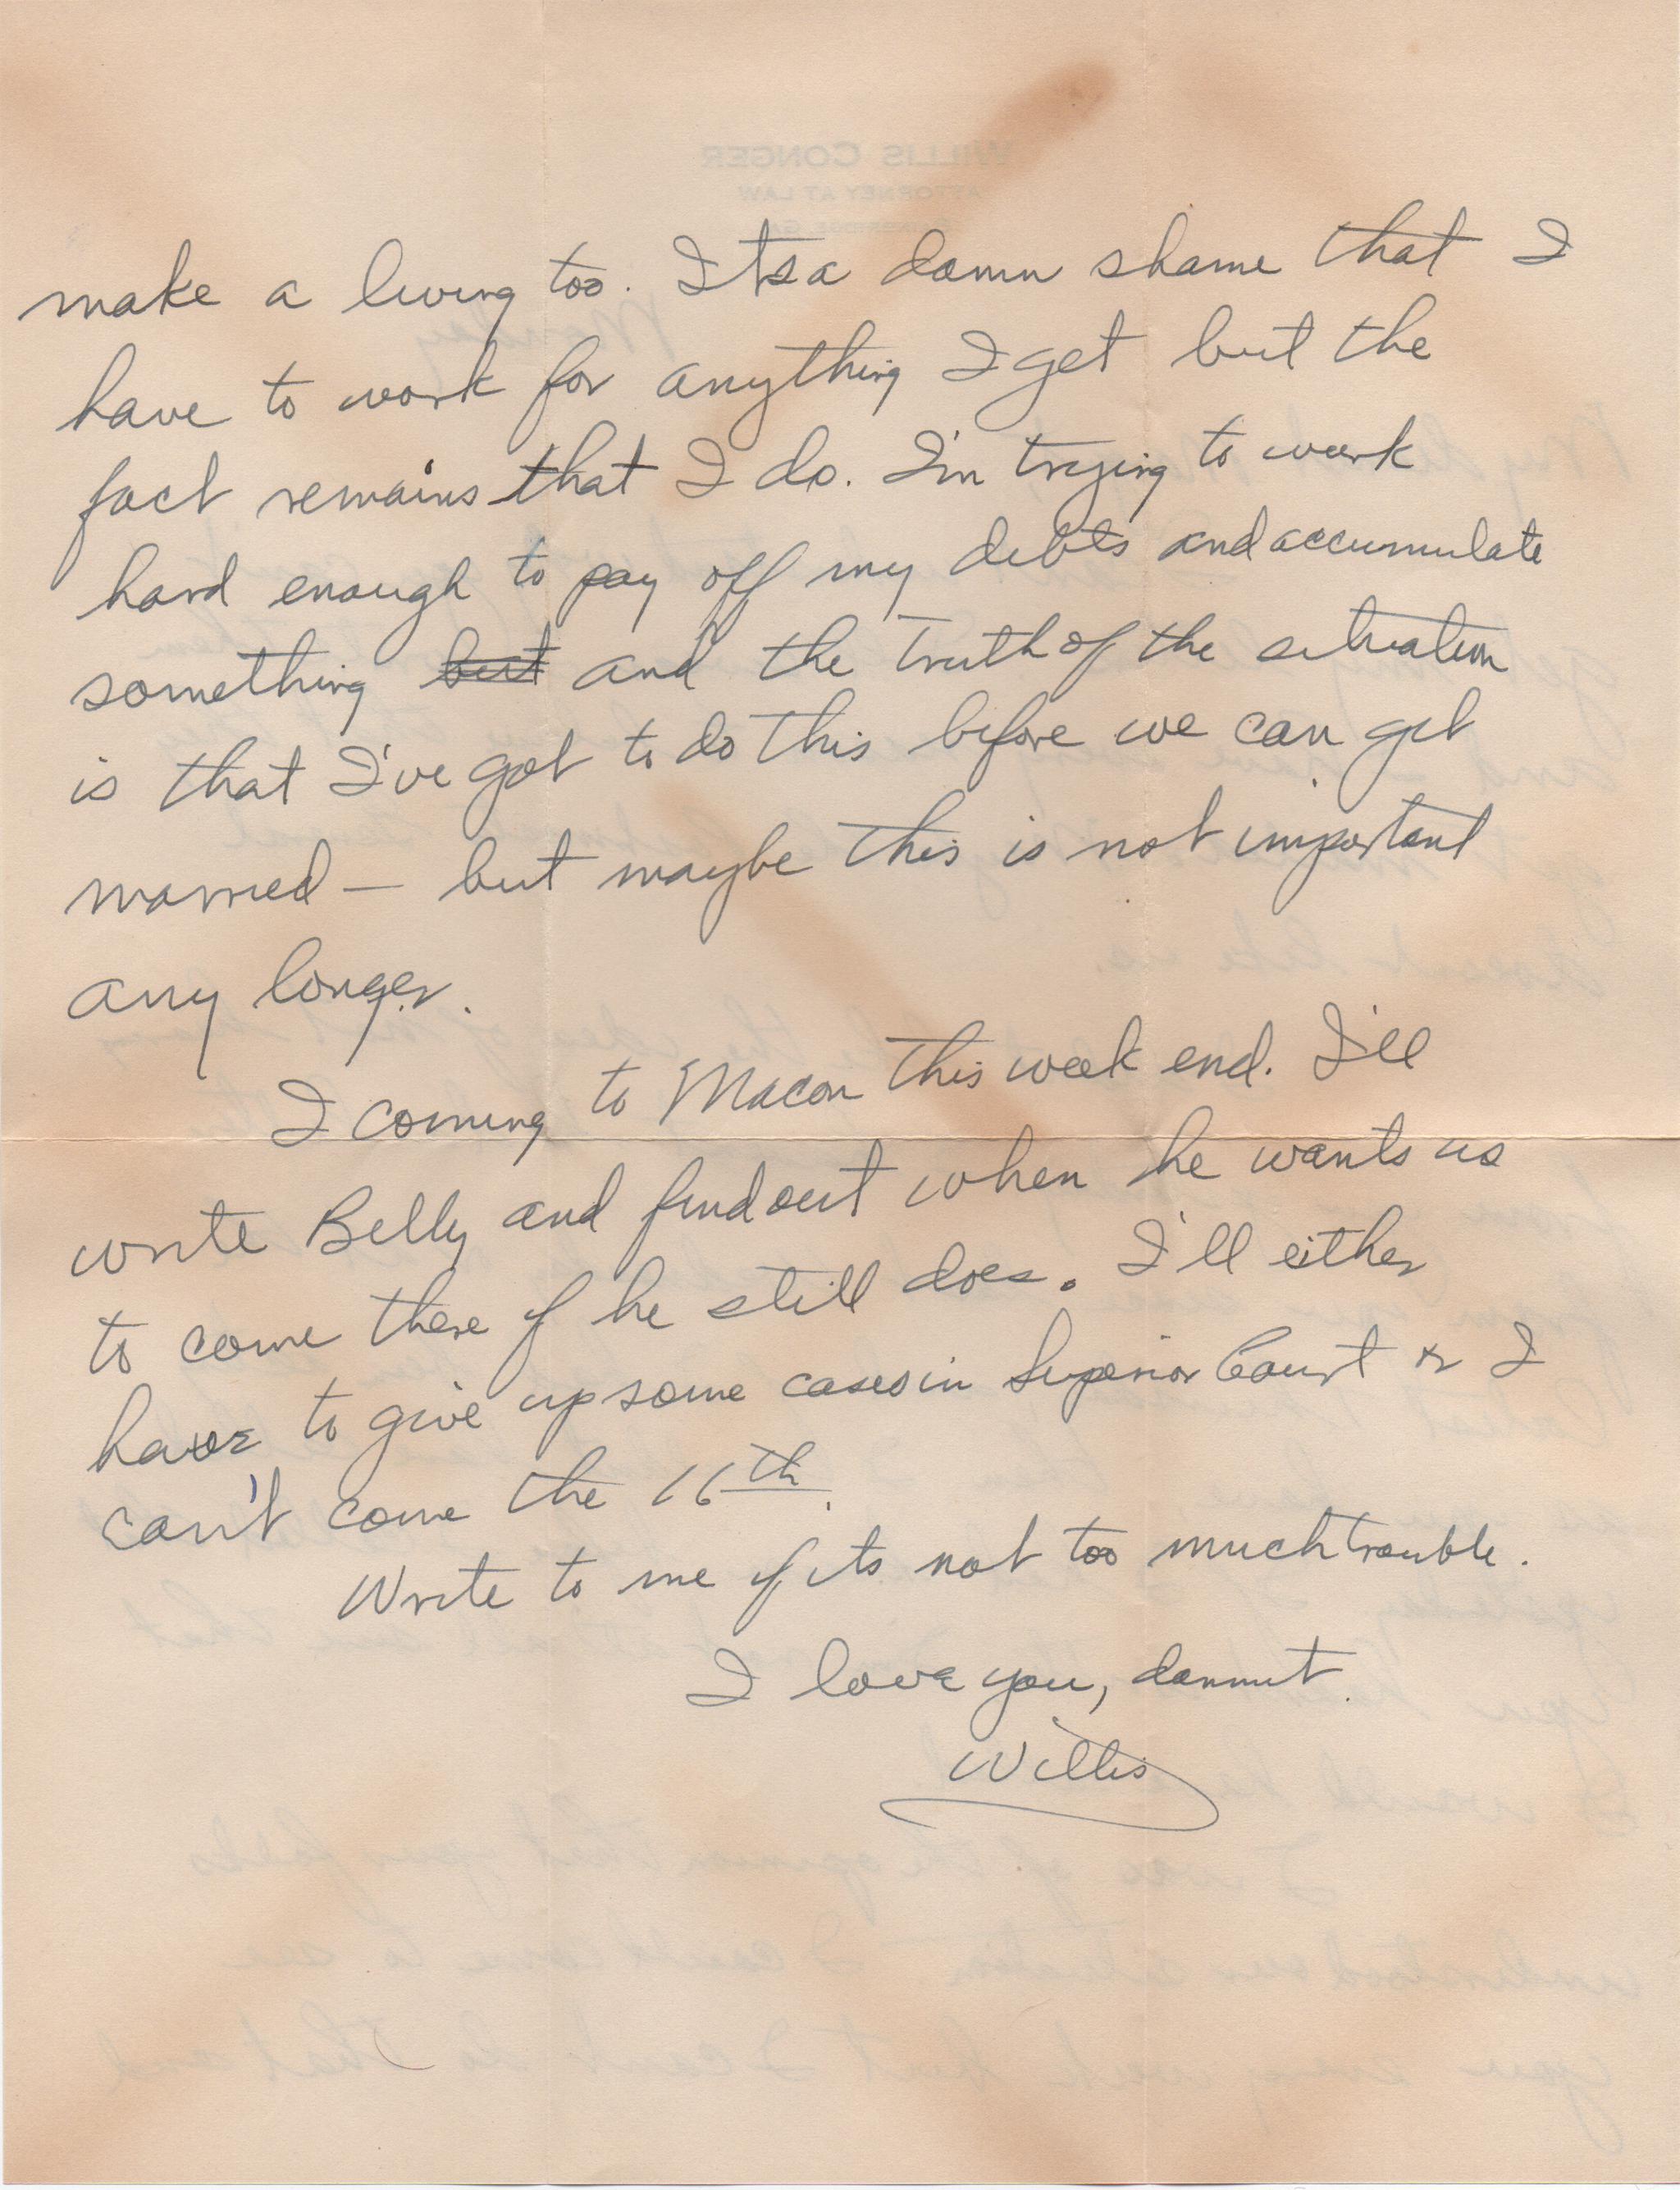 make a living too. Its a damn shame that I
have to work for anything I get but the
fact remains that I do. I'm trying to work
hard enough to pay off my debts and accumulate
something but and the truth of the situation
is that I've got to do this before we can get
married — but maybe this is not important
any longer.
I coming to Macon this week end. I'll
write Billy and find out when he wants us
to come there if he still does. I'll either
have to give up some cases in Superior Court or I
can't come the 16th.
Write to me if its not too much trouble.
I love you, dammit.
Willis